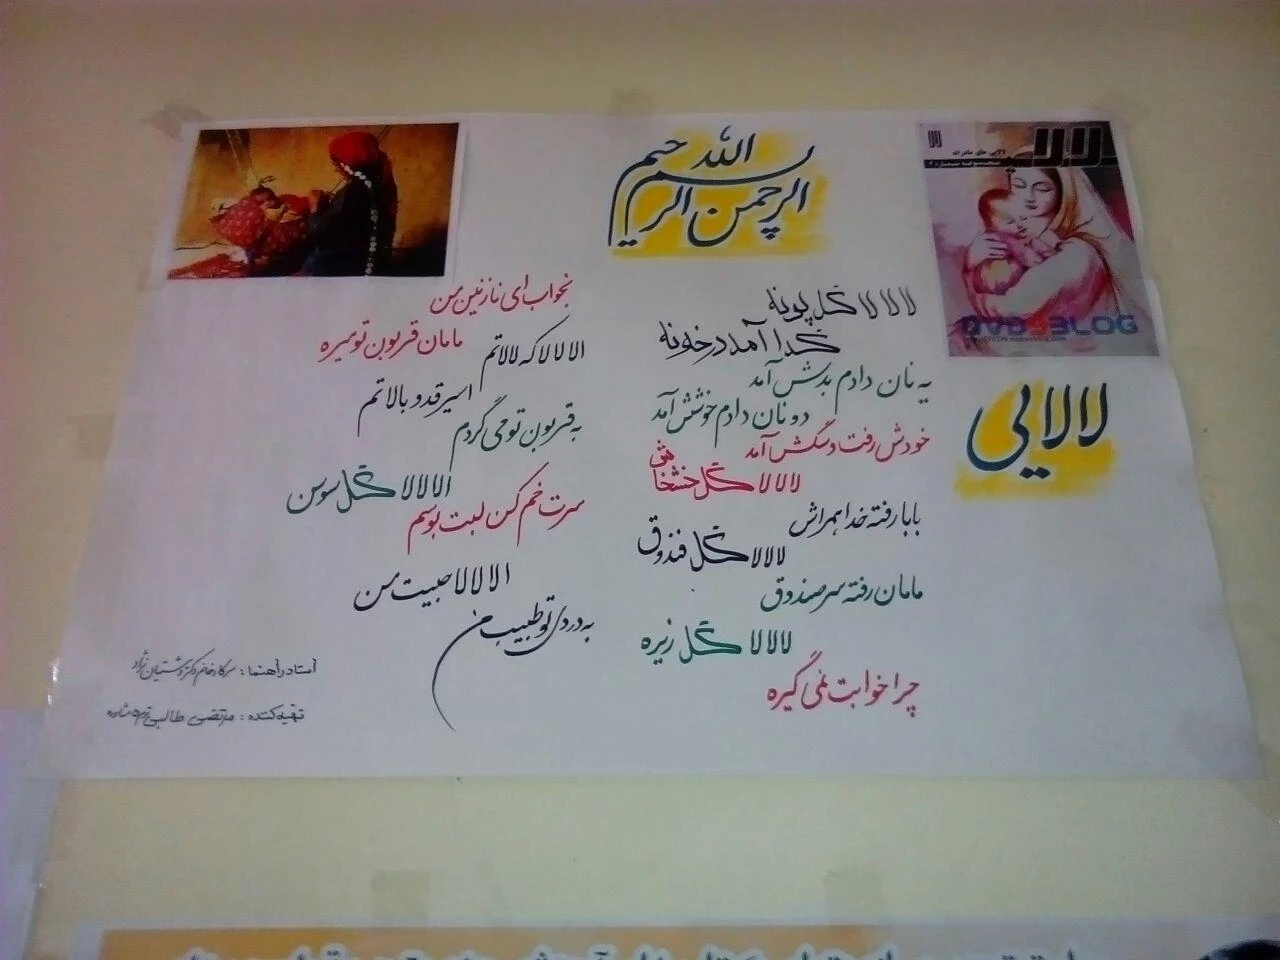 بسم الله الرحمن الرحیم
لالا
لالایی های مادرانه
مجموعه شماره ۲
DVD3BLOG
لالایی
لالا لالا گل پونه
گدا آمد در خونه
یه نان دادم بدش آمد
دو نان دادم خوشش آمد
خودش رفت و سگش آمد
لالا لالا گل خشخاش
بابا رفته خدا همراش
لالا لالا گل فندوق
مامان رفته سر صندوق
لالا لالا گل زیره
چرا خوابت نمی گیره
بخواب ای نازنین من
مامان قربون تو میره
الا لالا که لالاتم
اسیر قد و بالاتم
به قربون تو می گردم
الا لالا لا گل سوسن
سرت خم کن لبت بوسم
الا لالا لا حبیت من
به دردی تو طبیب من
استاد راهنما : سرکار خانم دکتر
تهیه کننده : مرتضی طالبی